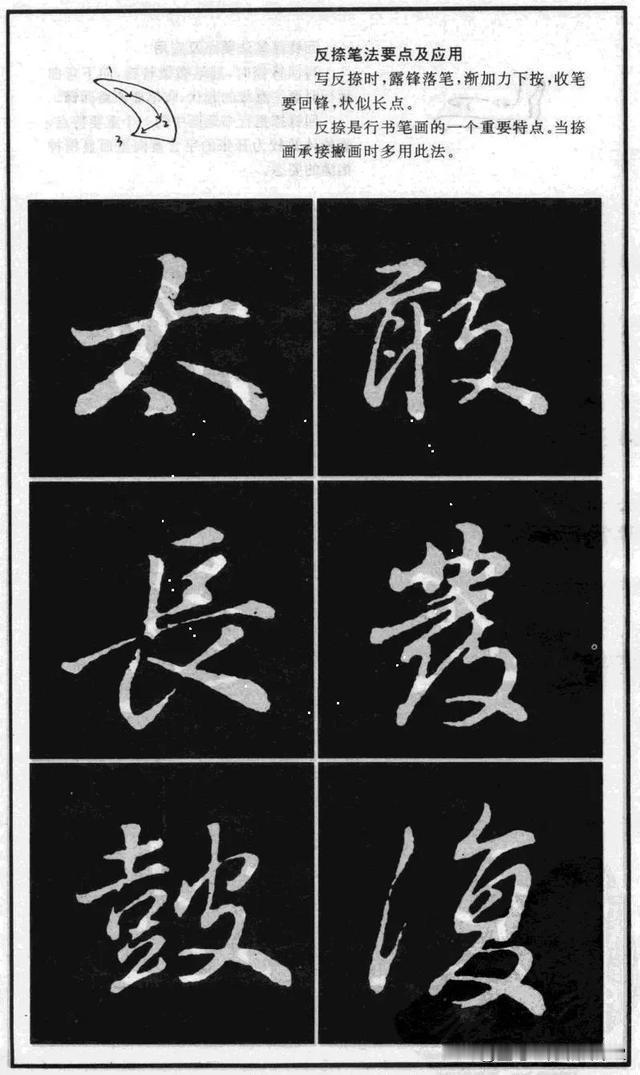 反捺笔法要点及应用
写反捺时，露锋落笔，渐加力下按，收笔
要回锋，状似长点。
反捺是行书笔画的一个重要特点。当捺
画承接撇画时多用此法。
2
3
太 敢
長 發
皷 復